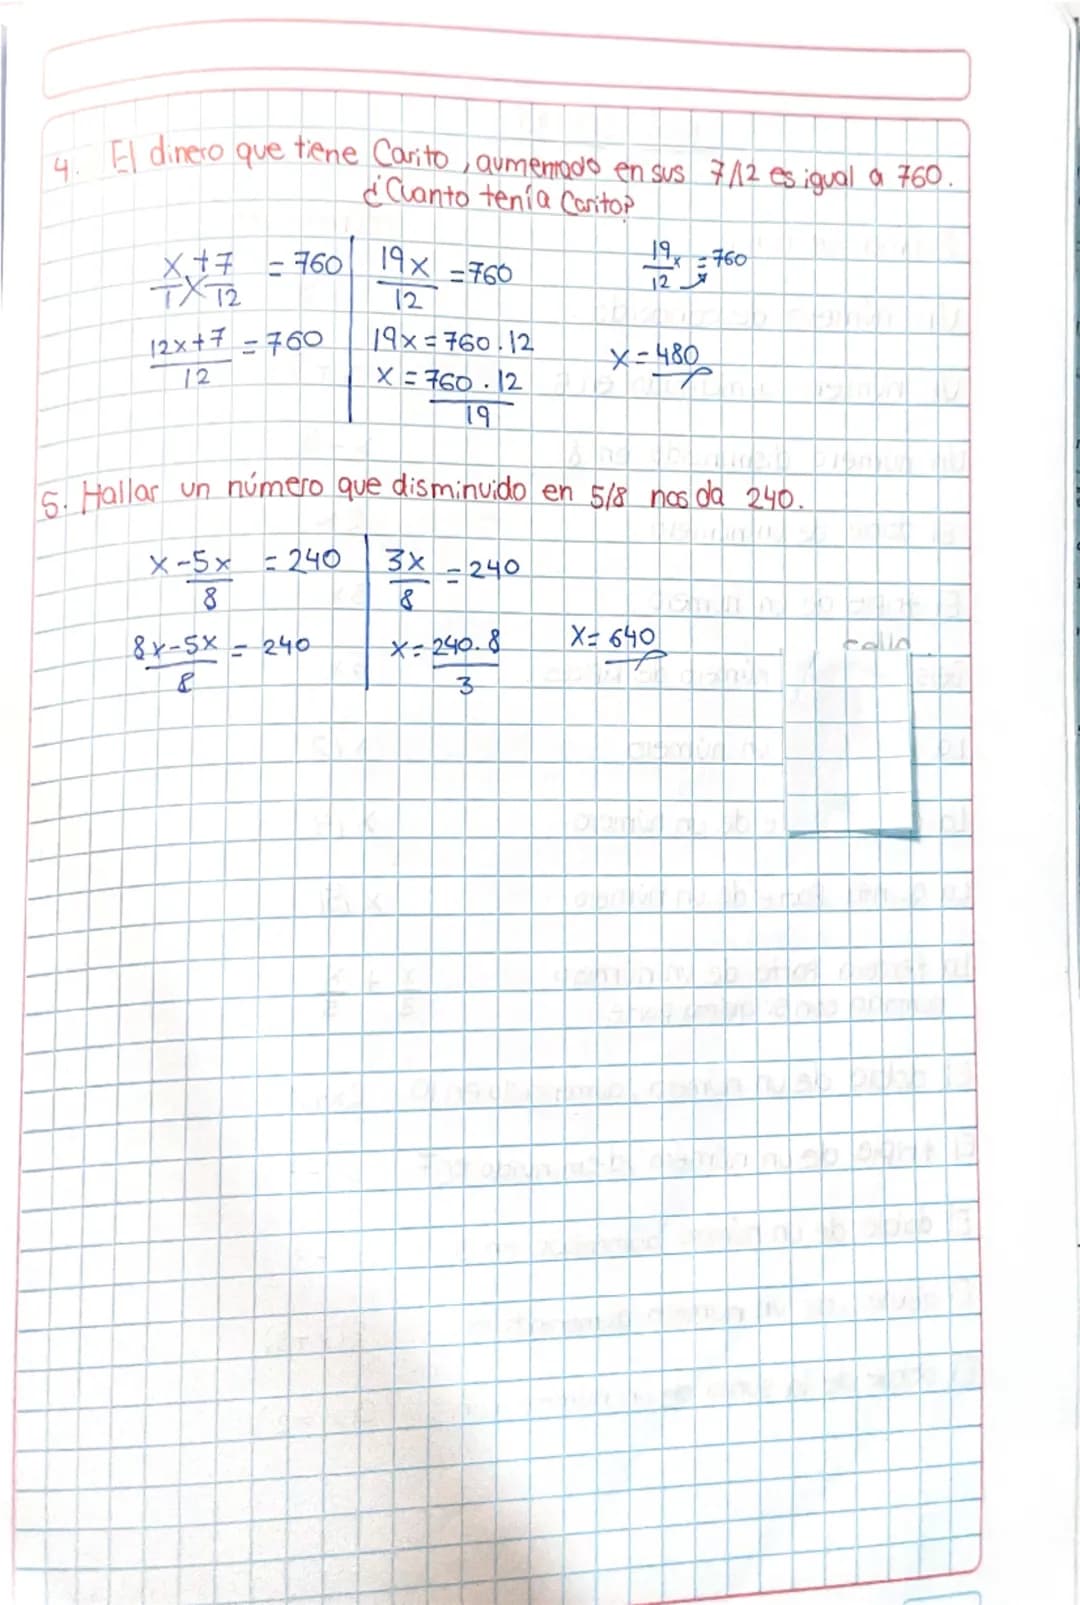 4. El dinero que tiene Carito, aumentado en sus 7/12 es igual a 760.
¿Cuanto tenía Carito?
x/1 + 7/12 = 760
12x+7/12 = 760
19x/12 = 760
19x = 760.12
x = 760.12/19
19/12 x = 760
x = 480
5. Hallar un número que disminuido en 5/8 nos da 240.
x - 5x/8 = 240
8x-5x/8 = 240
3x/8 = 240
x = 240.8/3
x = 640